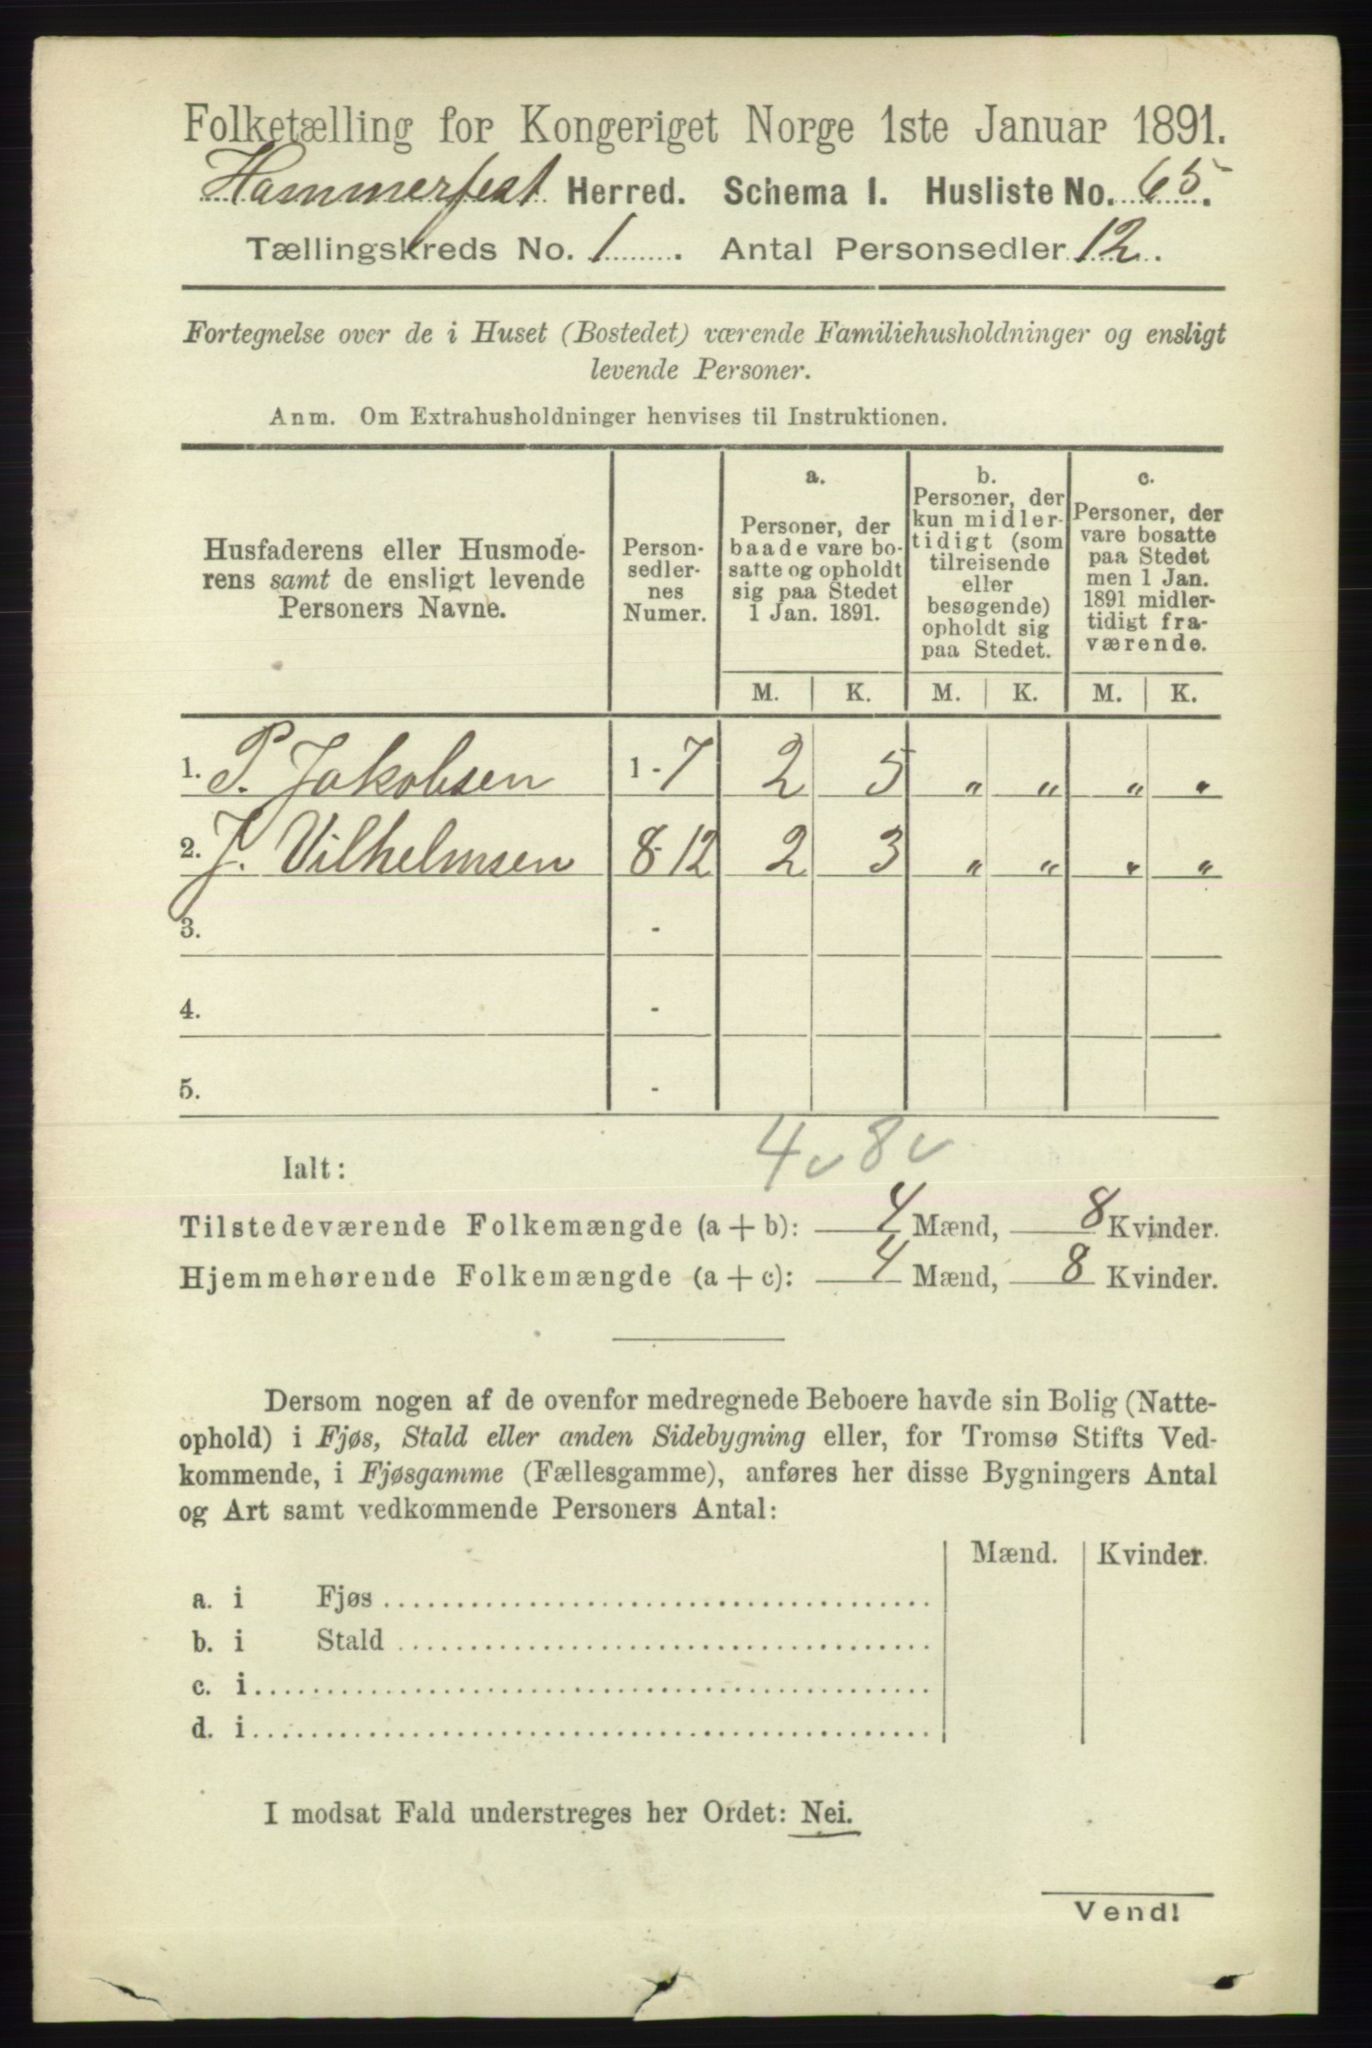 Folketælling for Kongeriget Norge 1ste Januar 1891.
Hammerfest Herred. Schema I. Husliste No. 65.
Tællingskreds No. 1. Antal Personsedler 12.
Fortegnelse over de i Huset (Bostedet) værende Familiehusholdninger og ensligt
levende Personer.
Anm. Om Extrahusholdninger henvises til Instruktionen.
Husfaderens eller Husmode-
rens samt de ensligt levende
Personers Navne.
Person-
sedler-
nes
Numer.
a.
Personer, der
baade vare bo-
satte og opholdt
sig paa Stedet
1 Jan. 1891.
b.
Personer, der
kun midler-
tidigt (som
tilreisende
eller
besøgende)
opholdt sig
paa Stedet.
c.
Personer, der
vare bosatte
paa Stedet
men 1 Jan.
1891 midler-
tidigt fra-
værende.
M. K. M. K. M. K.
1. P. Jakobsen 1-7 2 5 " " " "
2. J. Vilhelmsen 8-12 2 3 " " " "
3. -
4. -
5. -
4 v 8 v
Ialt:
Tilstedeværende Folkemængde (a + b): 4 Mænd, 8 Kvinder.
Hjemmehørende Folkemængde (a + c): 4 Mænd, 8 Kvinder.
Dersom nogen af de ovenfor medregnede Beboere havde sin Bolig (Natte-
ophold) i Fjøs, Stald eller anden Sidebygning eller, for Tromsø Stifts Ved-
kommende, i Fjøsgamme (Fællesgamme), anføres her disse Bygningers Antal
og Art samt vedkommende Personers Antal:
Mænd. Kvinder.
a. i Fjøs
b. i Stald
c. i
d. i
I modsat Fald understreges her Ordet: Nei.
Vend!